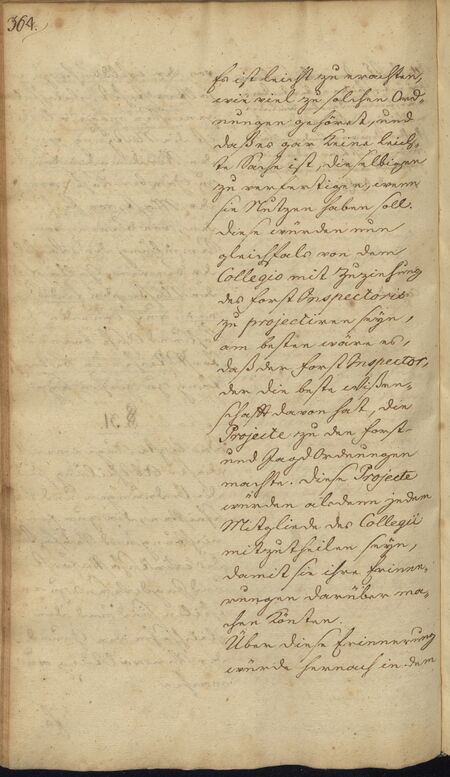 364.
Es ist leicht zu erachten,
wie viel zu solchen Ord-
nungen gehöret, und
daß es gar keine leich-
te Sache ist, dieselbigen
zu verfertigen, wenn
sie Nutzen haben soll.
Diese würden nun
gleichfals von dem
Collegio mit Zuziehung
des Forst Inspectoris
zu projectiren seyn,
am besten wäre es,
daß der Forst Inspector,
der die beste Wißen-
schafft davon hat, die
Projecte zu den Forst
und Jagd Ordnungen
machte. Diese Projecte
würden alsdenn jedem
Mitgliede des Collegii
mitzutheilen seyn,
damit sie ihre Erinne-
rungen darüber ma-
chen könten.
Über diese Erinnerung
würde hernach in dem